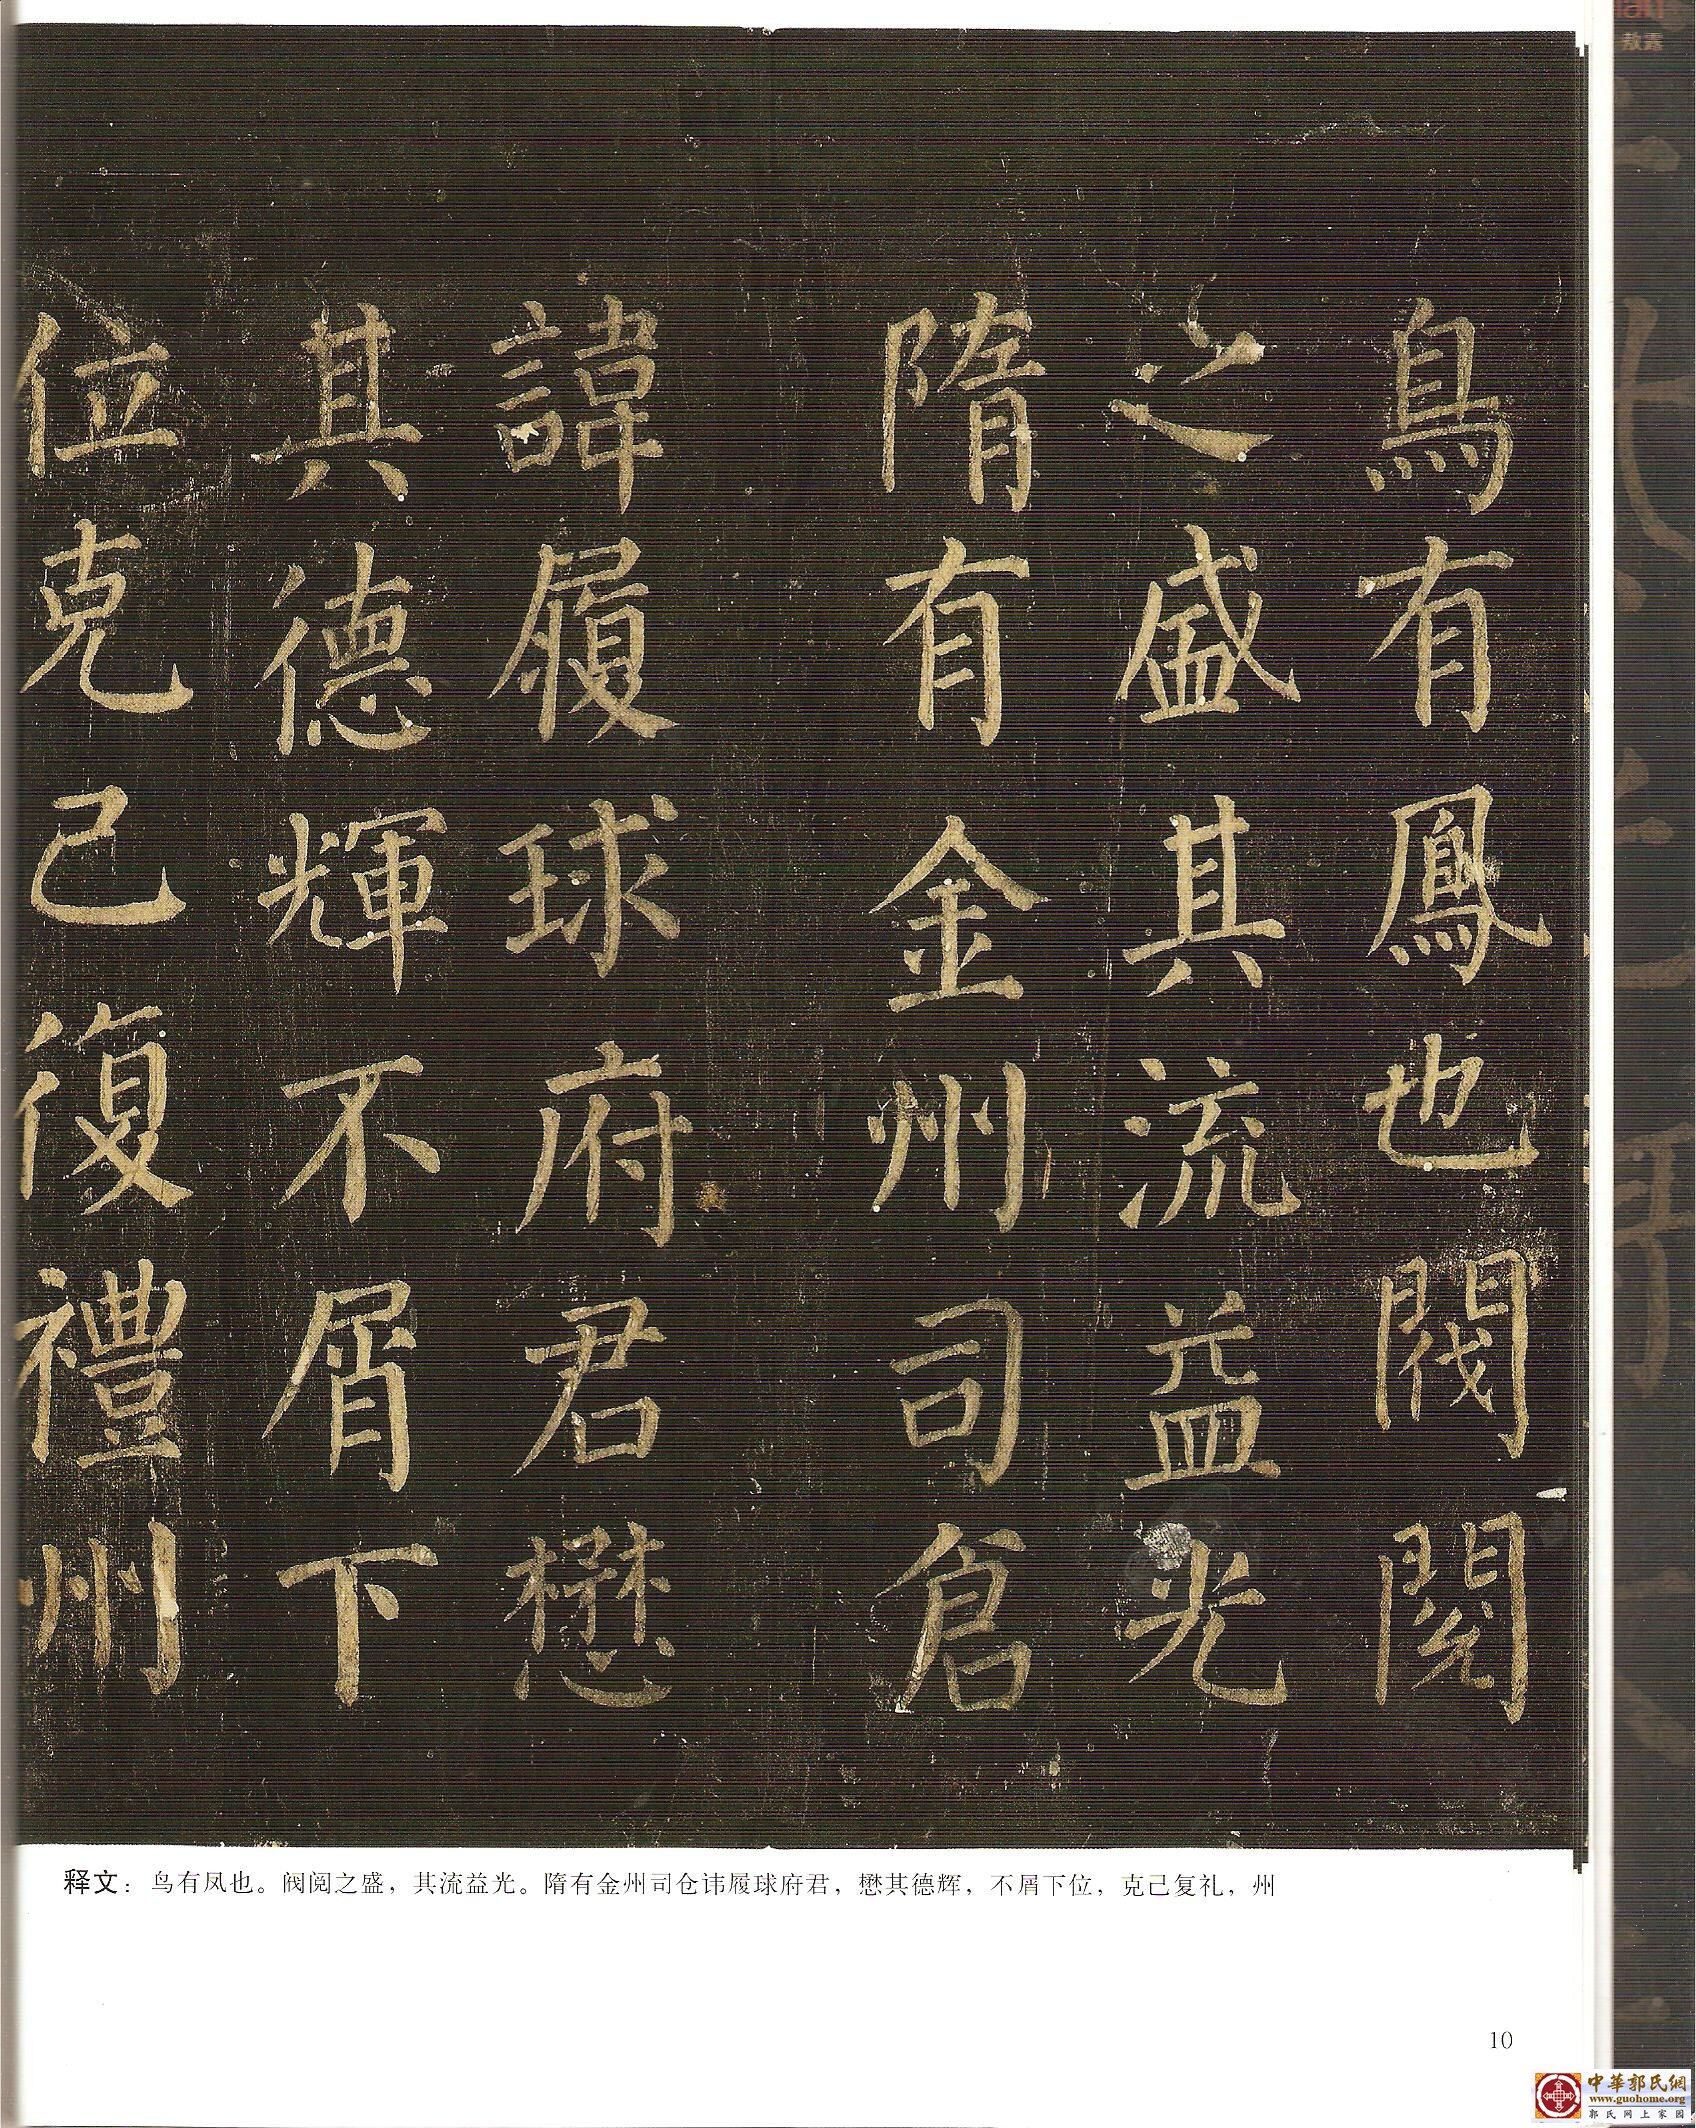 鳥有鳳也閥閱
之盛其流益光
隋有金州司倉
諱履球府君懋
其德輝不屑下
位克己復禮州
释文：鸟有凤也。阀阅之盛，其流益光。隋有金州司仓讳履球府君，懋其德辉，不屑下位，克己复礼，州
10
中華郭氏網
www.guohome.org
郭氏网上家园